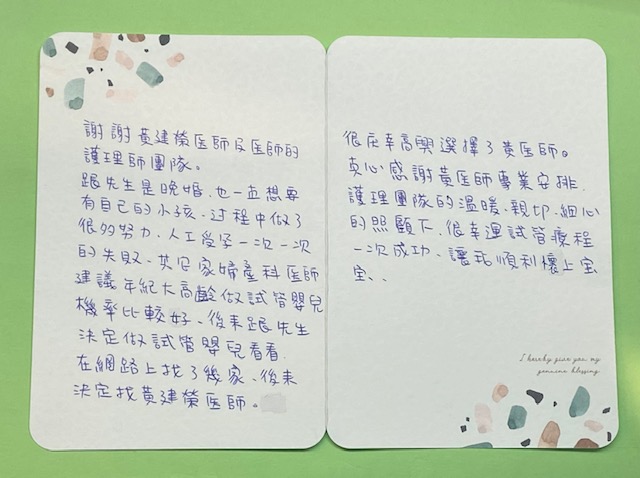 謝謝黃建榮医師及医師的
護理師團隊。
跟先生是晚婚、也一直想要
有自己的小孩、过程中做了
很多努力、人工受孕一次一次
的失敗、共安家婦產科医師
建議年紀大高齡做試管嬰兒
機率比較好、後來跟先生
決定做試管嬰兒看看、
在網路上找了幾家、後來
決定找黃建榮医師。
很庆幸高興選擇了黃医師。
真心感謝黃医師專業安排、
護理團隊的溫暖、親切、細心
的照顧下、很幸運試管療程
一次成功、讓我順利懷上宝
宝、、
I hereby give you my
genuine blessing